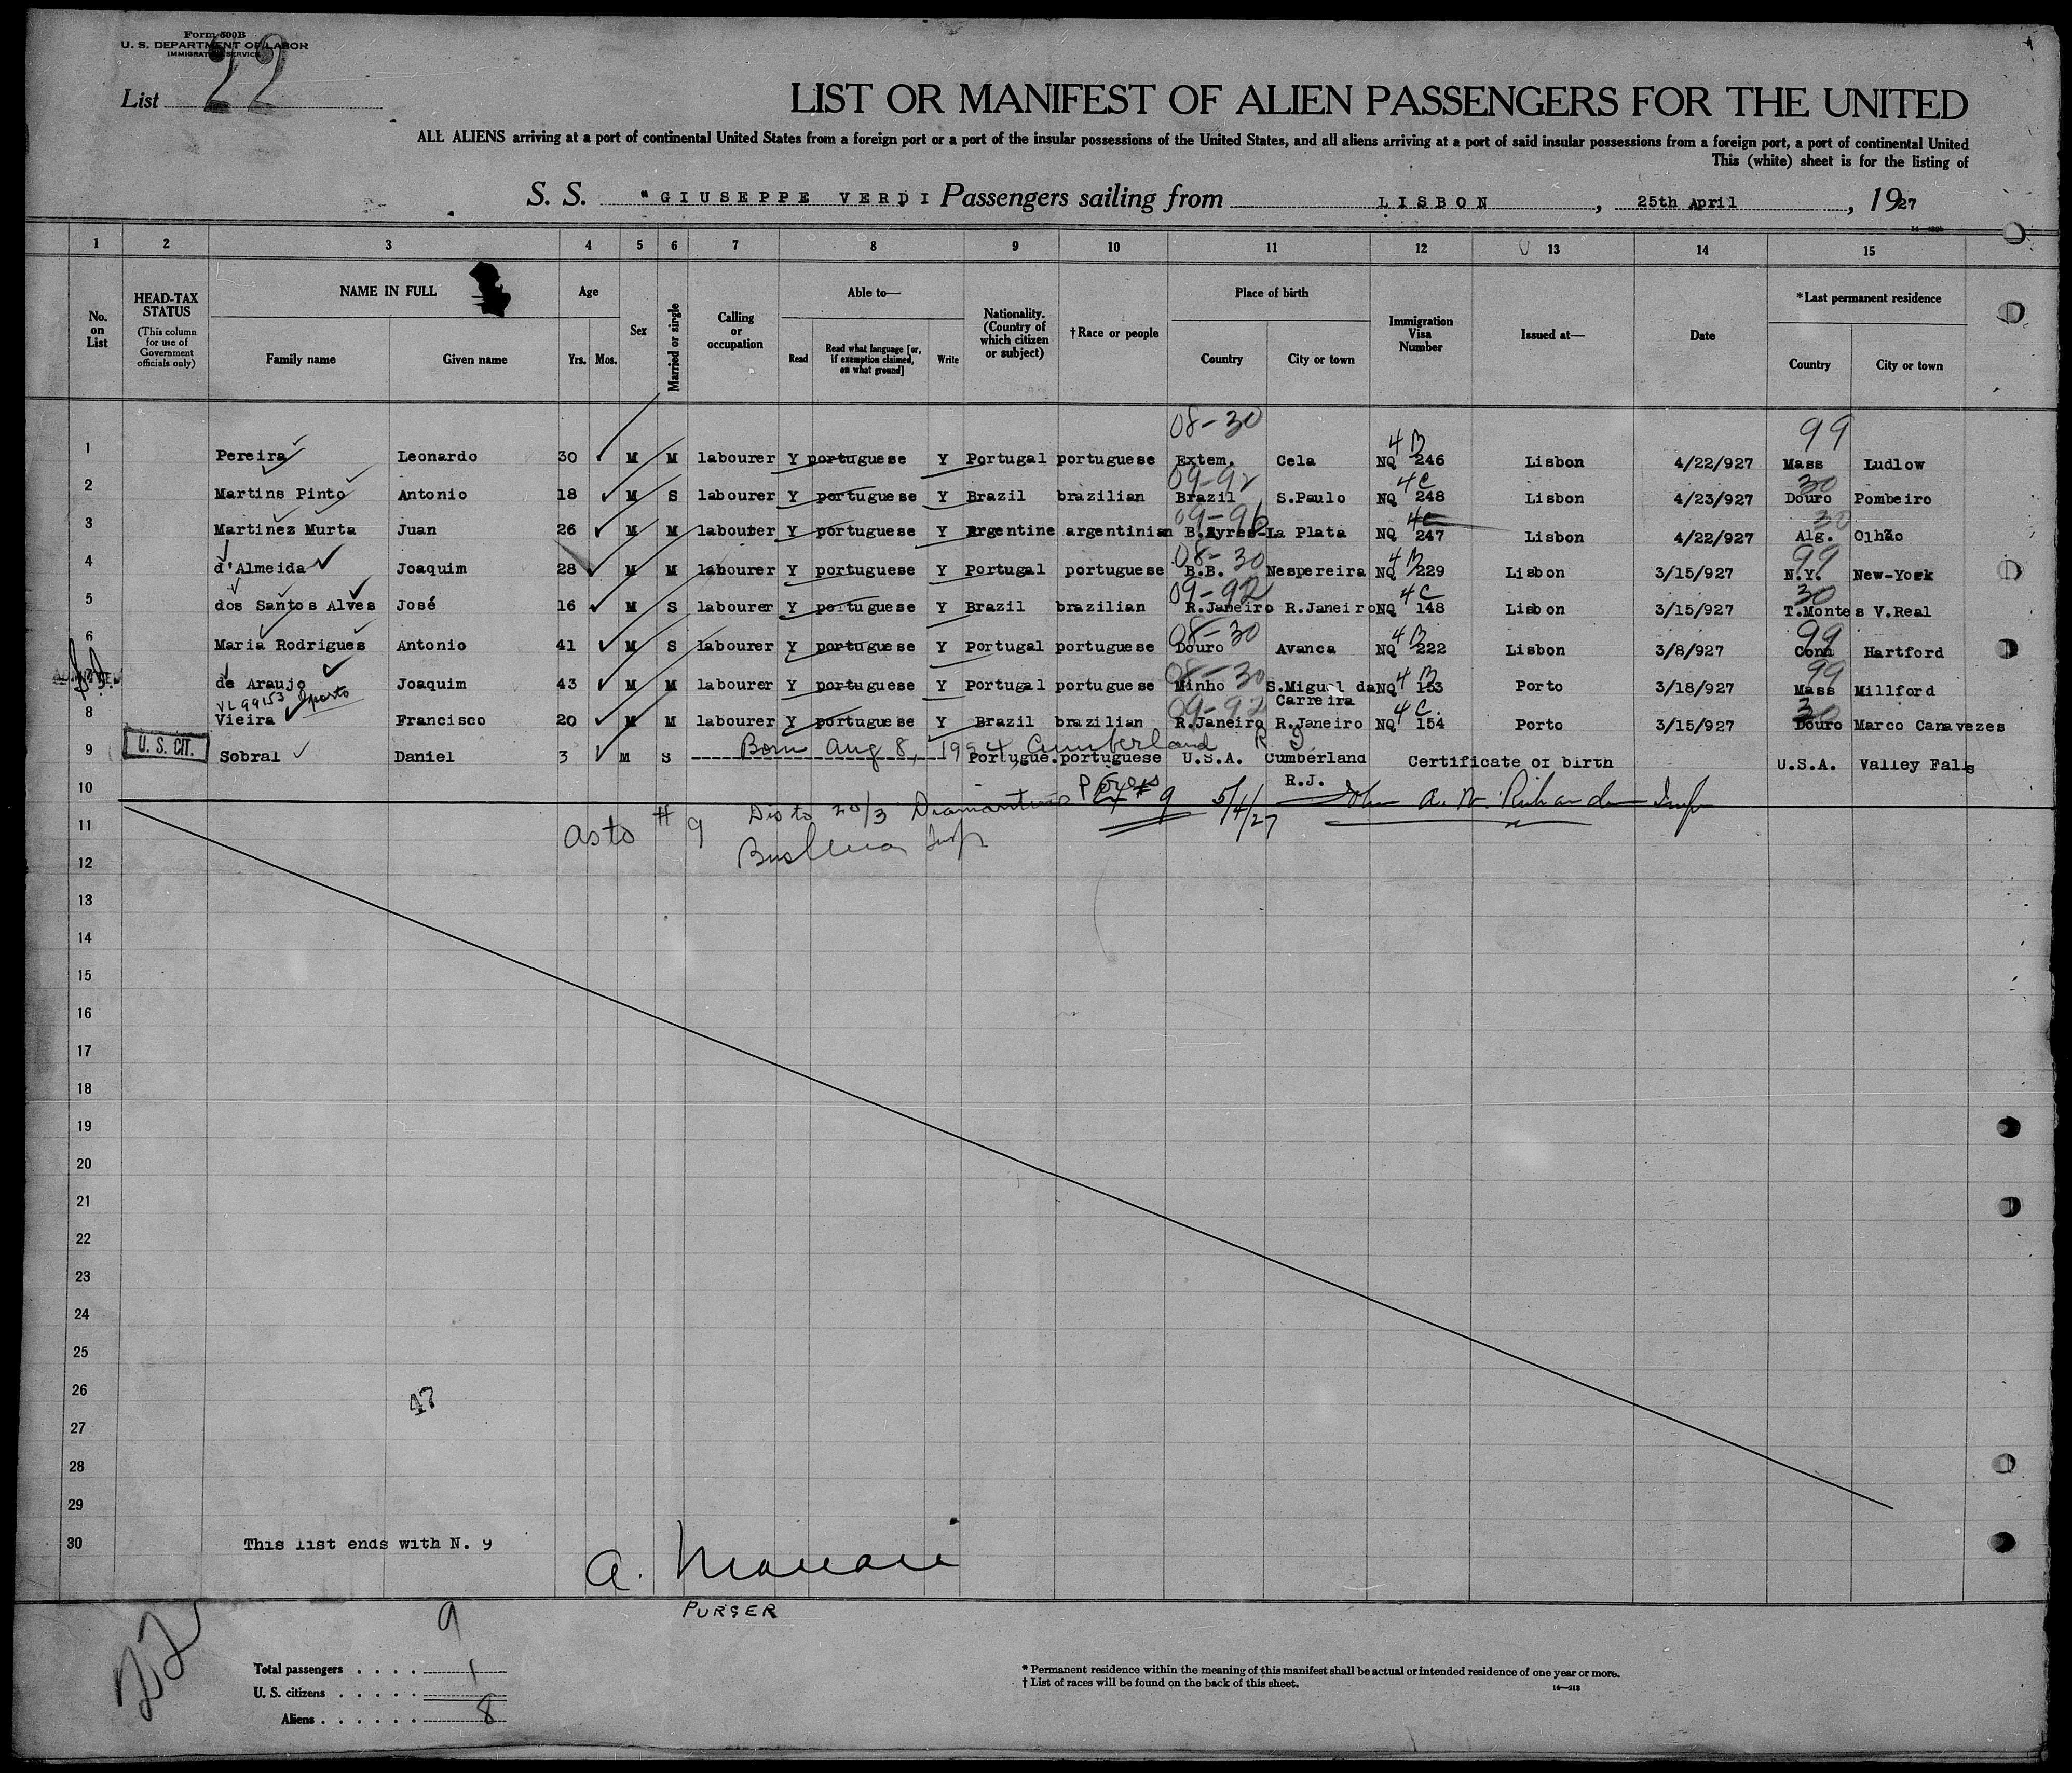 Form 500B
U. S. DEPARTMENT OF LABOR
IMMIGRATION SERVICE
List 22
LIST OR MANIFEST OF ALIEN PASSENGERS FOR THE UNITED
ALL ALIENS arriving at a port of continental United States from a foreign port or a port of the insular possessions of the United States, and all aliens arriving at a port of said insular possessions from a foreign port, a port of continental United
This (white) sheet is for the listing of
S. S. "GIUSEPPE VERDI Passengers sailing from LISBON, 25th April, 1927
1 2 3 4 5 6 7 8 9 10 11 12 13 14 15
No. on List
HEAD-TAX STATUS (This column for use of Government officials only)
NAME IN FULL Family name Given name
Age Yrs. Mos.
Sex
Married or single
Calling or occupation
Able to— Read Read what language [or, if exemption claimed, on what ground] Write
Nationality. (Country of which citizen or subject)
†Race or people
Place of birth Country City or town
Immigration Visa Number
Issued at—
Date
*Last permanent residence Country City or town
08-30 4B 99
1 Pereira Leonardo 30 M M labourer Y portuguese Y Portugal portuguese Extem. Cela NQ 246 Lisbon 4/22/927 Mass Ludlow
09-92 4C 30
2 Martins Pinto Antonio 18 M S labourer Y portuguese Y Brazil brazilian Brazil S.Paulo NQ 248 Lisbon 4/23/927 Douro Pombeiro
09-96 4C 30
3 Martinez Murta Juan 26 M M labourer Y portuguese Y Argentine argentinian B.Ayres-La Plata NQ 247 Lisbon 4/22/927 Alg. Olhão
08-30 4B 99
4 d'Almeida Joaquim 28 M M labourer Y portuguese Y Portugal portuguese B.B. Nespereira NQ 229 Lisbon 3/15/927 N.Y. New-York
09-92 4C 30
5 dos Santos Alves José 16 M S labourer Y portuguese Y Brazil brazilian R.Janeiro R.Janeiro NQ 148 Lisbon 3/15/927 T.Montes V.Real
08-30 4B 99
6 Maria Rodrigues Antonio 41 M S labourer Y portuguese Y Portugal portuguese Douro Avanca NQ 222 Lisbon 3/8/927 Conn Hartford
08-30 4B 99
de Araujo Joaquim 43 M M labourer Y portuguese Y Portugal portuguese Minho S.Miguel da Carreira NQ 153 Porto 3/18/927 Mass Millford
VL 99153 Oporto
09-92 4C. 30
8 Vieira Francisco 20 M M labourer Y portuguese Y Brazil brazilian R.Janeiro R.Janeiro NQ 154 Porto 3/15/927 Douro Marco Canavezes
Born Aug 8, 1924 Cumberland R I
9 U. S. CIT. Sobral Daniel 3 M S Portugue. portuguese U.S.A. Cumberland R.J. Certificate of birth U.S.A. Valley Falls
10
# 9 5/4/27 John A. W. Richardson Insp
11 as to # 9 Dis to 20/3 Diamantino
Insp
12
13
14
15
16
17
18
19
20
21
22
23
24
25
26
47
27
28
29
30 This list ends with N. 9
PURSER
22
9
Total passengers . . . . 1
U. S. citizens . . . . .
Aliens . . . . . . 8
* Permanent residence within the meaning of this manifest shall be actual or intended residence of one year or more.
† List of races will be found on the back of this sheet.
14—213